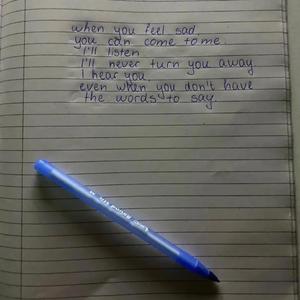 when you feel sad
you can come to me.
I'll listen
I'll never turn you away
I hear you,
even when you don't have
the words to say.